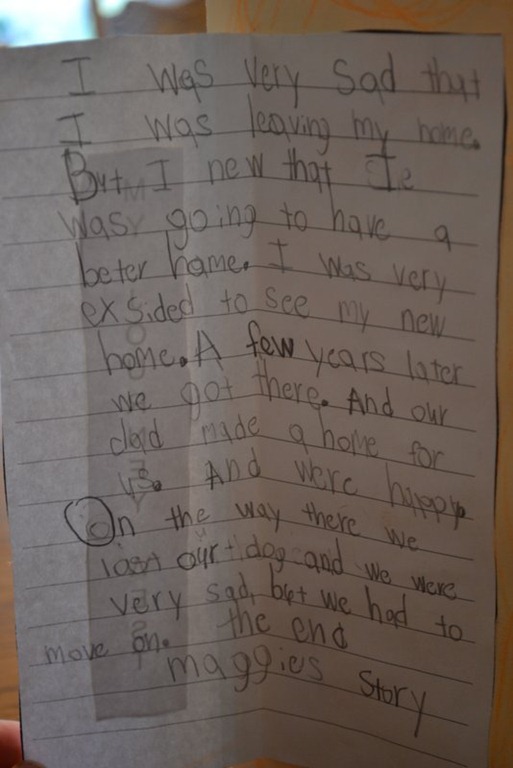 I was very sad that
I was leaving my home.
But I new that I
was going to have a
beter home. I was very
exsided to see my new
home. A few years later
we got there. And our
dad made a home for
us. And were happy.
On the way there we
lost our dog and we were
very sad, but we had to
move on. the end
maggies Story